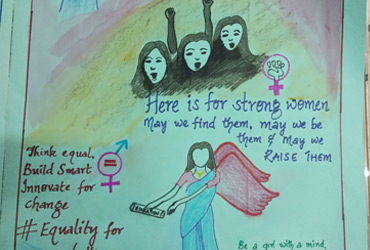 Here is for strong women
May we find them, may we be
them & may we
RAISE THEM
Think equal,
Build Smart
Innovate for
change
# Equality for
EDUCATION
Be a girl with a mind,